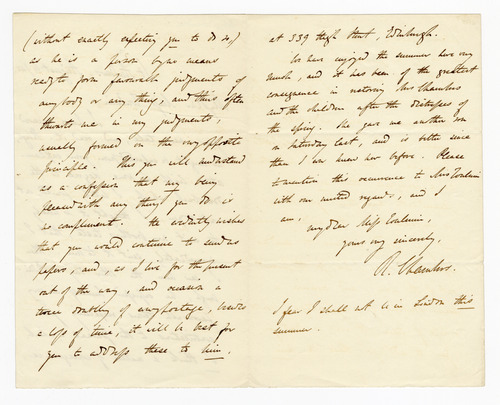 (without exactly expecting you to do so,)
as he is a person by no means
ready to form favourable judgments of
any body or any thing, and thus often
thwarts me in my judgments,
usually formed on the very opposite
principle. This you will understand
as a confession that my being
pleased with any thing you do is
no compliment. He evidently wishes
that you would continue to send us
papers, and, as I live for the present
out of the way, and occasion a
double of any postage, besides
a loss of time, it will be best for
you to address these to him,
at 339 High Street, Edinburgh.
We have enjoyed the summer here very
much, and it has been of the greatest
consequence in restoring Mrs Chambers
and the children after the distresses of
the spring. She gave me another son
on Saturday last, and is better since
than I ever knew her before. Please
to mention this occurrence to Mrs Toulmin
with our united regards, and I
am,
my dear Miss Toulmin,
yours very sincerely,
R. Chambers.
I fear I shall not be in London this
summer.